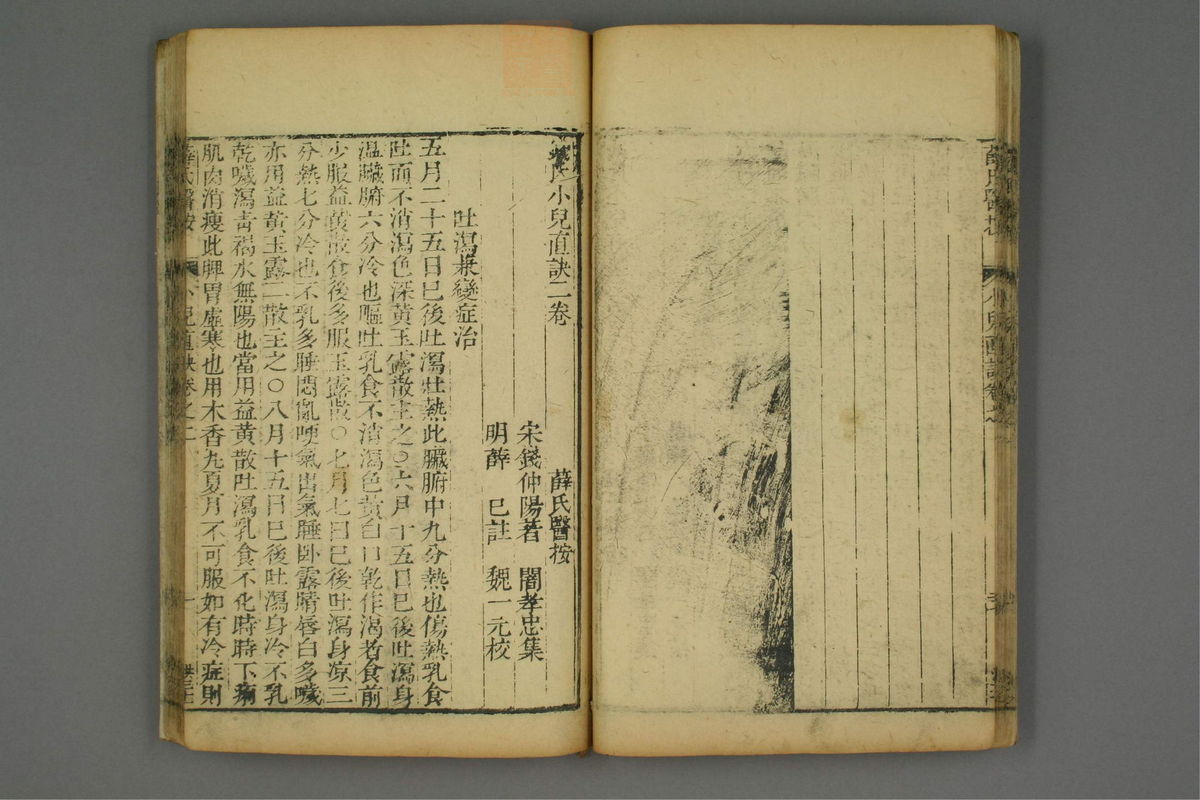 錢氏小兒直訣二卷
薛氏醫按
宋錢仲陽著 閻孝忠集
明薛 已註 魏一元校
吐瀉兼變症治
五月二十五日已後吐瀉壯熱此臟腑中九分熱也傷熱乳食
吐而不消瀉色深黃玉露散主之○六月十五日已後吐瀉身
溫臟腑六分冷也嘔吐乳食不消瀉色黃白口乾作渴者食前
少服益黃散食後多服玉露散○七月七日已後吐瀉身凉三
分熱七分冷也不乳多睡悶亂哽氣出氣睡卧露睛唇白多噦
亦用益黃玉露二散主之○八月十五日已後吐瀉身冷不乳
乾噦瀉青褐水無陽也當用益黃散吐瀉乳食不化時時下痢
肌肉消瘦此脾胃虛寒也用木香丸夏月不可服如有冷症則
薛氏醫按 小兒直訣卷之二 一